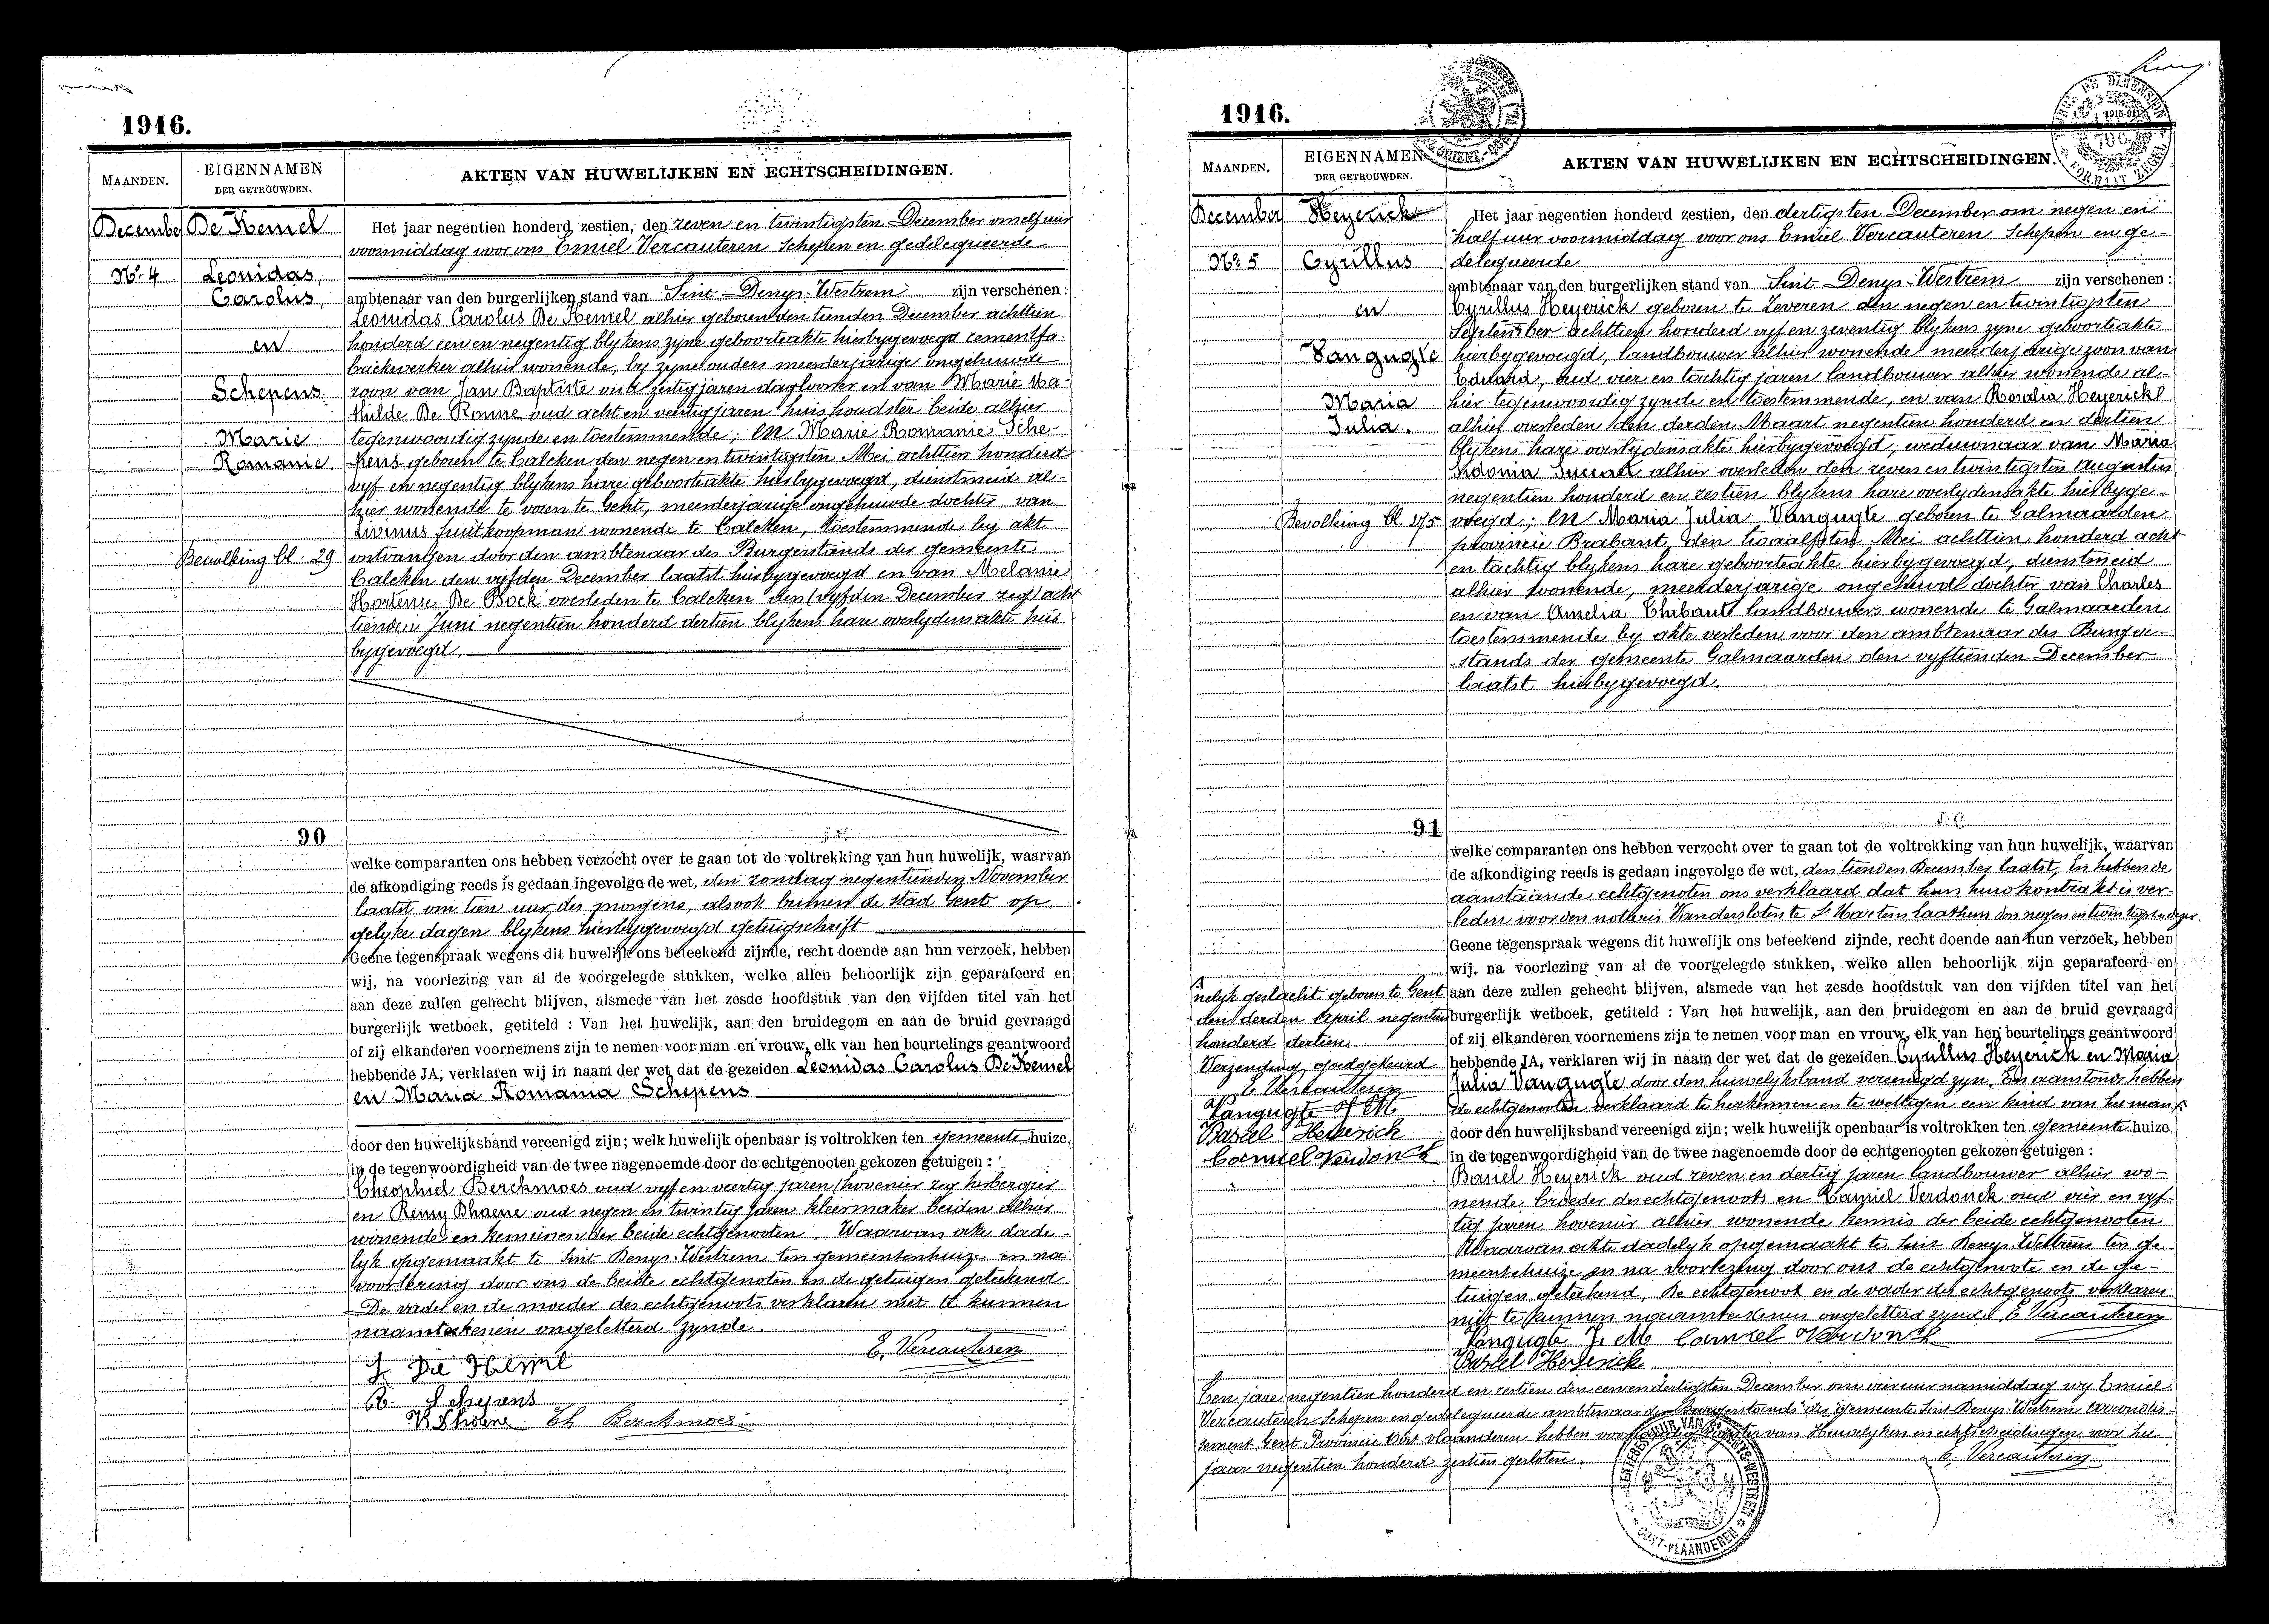 1916.
MAANDEN.
EIGENNAMEN
DER GETROUWDEN.
AKTEN VAN HUWELIJKEN EN ECHTSCHEIDINGEN.
December
De Kemel
Nº 4
Leonidas,
Carolus,
en
Schepens
Marie
Romanie
Bevolking bl. 29
90
Het jaar negentien honderd zestien, den zeven en twintigsten December om elf uur
voormiddag voor ons Emiel Vercauteren Schepen en gedelegueerde
ambtenaar van den burgerlijken stand van Sint-Denys-Westrem zijn verschenen:
Leonidas Carolus De Kemel alhier geboren den tienden December achttien
honderd een en negentig blykens zyne geboorteakte hierbygevoegd cementfa-
briekwerker alhier wonende, by zyne ouders meerderjarige ongehuwde
zoon van Jan Baptiste oud zestig jaren daglooner en van Marie Ma-
thilde De Ronne oud acht en veertig jaren huishoudster beide alhier
tegenwoordig zynde en toestemmende; en Marie Romanie Sche-
pens geboren te Calcken den negen en twintigsten Mei achttien honderd
vyf en negentig blykens hare geboorteakte hierbygevoegd, dienstmeid al-
hier wonende te voren te Gent, meerderjarige ongehuwde dochter van
Livinus fruitkoopman wonende te Calcken, toestemmende by akt
ontvangen door den ambtenaar des Burgerstands der gemeente
Calcken den vyfden December laatst hierbygevoegd en van Melanie
Hortense De Bock overleden te Calcken den (vyfden December zeg) acht
tienden Juni negentien honderd dertien blykens hare overlydensakte hier-
bygevoegd.
welke comparanten ons hebben verzocht over te gaan tot de voltrekking van hun huwelijk, waarvan
de afkondiging reeds is gedaan ingevolge de wet, den zondag negentienden November
laatst om tien uur des morgens, alsook binnen de stad Gent op
gelyke dagen blykens hierbygevoegd getuigschrift
Geene tegenspraak wegens dit huwelijk ons beteekend zijnde, recht doende aan hun verzoek, hebben
wij, na voorlezing van al de voorgelegde stukken, welke allen behoorlijk zijn geparafeerd en
aan deze zullen gehecht blijven, alsmede van het zesde hoofdstuk van den vijfden titel van het
burgerlijk wetboek, getiteld : Van het huwelijk, aan den bruidegom en aan de bruid gevraagd
of zij elkanderen voornemens zijn te nemen voor man en vrouw, elk van hen beurtelings geantwoord
hebbende JA, verklaren wij in naam der wet dat de gezeiden Leonidas Carolus De Kemel
en Maria Romania Schepens
door den huwelijksband vereenigd zijn; welk huwelijk openbaar is voltrokken ten gemeente huize,
in de tegenwoordigheid van de twee nagenoemde door de echtgenooten gekozen getuigen :
Theophiel Berckmoes oud vyf en veertig jaren (hovenier zeg herbergier
en Remy Dhaene oud negen en twintig jaren kleermaker beiden alhier
wonende en kennissen der beide echtgenooten. Waarvan akte dade-
lyk opgemaakt te Sint Denys-Westrem ten gemeentenhuize en na
voorlezing door ons de beide echtgenoten en de getuigen geteekend
De vader en de moeder des echtgenoots verklaren niet te kunnen
naamteekenen ongeletterd zynde.
E. Vercauteren
L De Kemel
R. Schepens
R Dhaene Th Berckmoes
1916.
MAANDEN.
EIGENNAMEN
DER GETROUWDEN.
AKTEN VAN HUWELIJKEN EN ECHTSCHEIDINGEN.
December
Heyerick
Nº 5
Cyrillus
en
Vangugte
Maria
Julia.
Bevolking bl 275
91
Het jaar negentien honderd zestien, den dertigsten December om negen en
half uur voormiddag voor ons Emiel Vercauteren Schepen en ge-
delegueerde
ambtenaar van den burgerlijken stand van Sint-Denys-Westrem zijn verschenen:
Cyrillus Heyerick geboren te Zeveren den negen en twintigsten
September achttien honderd vyf en zeventig blykens zyne geboorteakte
hierbygevoegd, landbouwer alhier wonende meerderjarige zoon van
Eduard, oud vier en tachtig jaren landbouwer alhier wonende al-
hier tegenwoordig zynde en toestemmende, en van Rosalia Heyerick
alhier overleden den derden Maart negentien honderd en dertien
blykens hare overlydensakte hierbygevoegd, weduwnaar van Maria
Sidonia alhier overleden den zeven en twintigsten Augustus
negentien honderd en zestien blykens hare overlydensakte hierbyge-
voegd; en Maria Julia Vangugte geboren te Galmaarden
provincie Brabant, den twaalfsten Mei achttien honderd acht
en tachtig blykens hare geboorteakte hierbygevoegd, dienstmeid
alhier wonende, meerderjarige ongehuwde dochter van Charles
en van Amelia Thibaut landbouwers wonende te Galmaarden
toestemmende by akte verleden voor den ambtenaar des Burger-
stands der gemeente Galmaarden den vyftienden December
laatst hierbygevoegd.
welke comparanten ons hebben verzocht over te gaan tot de voltrekking van hun huwelijk, waarvan
de afkondiging reeds is gedaan ingevolge de wet, den tienden December laatst, En hebben de
aanstaande echtgenoten ons verklaard dat hun huwkontrakt is ver-
leden voor den notaris Vandersloten te St Martens Laathem den negen en twintigsten dezer.
Geene tegenspraak wegens dit huwelijk ons beteekend zijnde, recht doende aan hun verzoek, hebben
wij, na voorlezing van al de voorgelegde stukken, welke allen behoorlijk zijn geparafeerd en
aan deze zullen gehecht blijven, alsmede van het zesde hoofdstuk van den vijfden titel van het
burgerlijk wetboek, getiteld : Van het huwelijk, aan den bruidegom en aan de bruid gevraagd
of zij elkanderen voornemens zijn te nemen voor man en vrouw, elk van hen beurtelings geantwoord
hebbende JA, verklaren wij in naam der wet dat de gezeiden Cyrillus Heyerick en Maria
Julia Vangugte door den huwelyksband vereenigd zyn. En aanstonds hebben
de echtgenooten verklaard te herkennen en te wettigen een kind van het man-
nelyk geslacht geboren te Gent
den derden April negentien
honderd dertien.
Verzending goedgekeurd
E Vercauteren
Vangugte J M
Basiel Heyerick
Camiel Verdonck
door den huwelijksband vereenigd zijn; welk huwelijk openbaar is voltrokken ten gemeente huize,
in de tegenwoordigheid van de twee nagenoemde door de echtgenooten gekozen getuigen :
Basiel Heyerick oud zeven en dertig jaren landbouwer alhier wo-
nende broeder des echtgenoots en Camiel Verdonck oud vier en vyf-
tig jaren hovenier alhier wonende kennis der beide echtgenooten
Waarvan akte dadelyk opgemaakt te Sint Denys-Westrem ten ge-
meentehuize en na voorlezing door ons de echtgenoote en de ge-
tuigen geteekend. De echtgenoot en de vader des echtgenoots verklaren
niet te kunnen naamteekenen ongeletterd zynde E Vercauteren
Vangugte J. M Camiel Verdonck
Basiel Heyerick
Ten jare negentien honderd en zestien den een en dertigsten December om vier uur namiddag wy Emiel
Vercauteren Schepen en gedelegueerde ambtenaar des Burgerstands der gemeente Sint Denys-Westrem arrondis-
sement Gent Provincie Oost vlaanderen hebben van Huwelyken en echtscheidingen voor het
jaar negentien honderd zestien gesloten.
E. Vercauteren
OOST-VLAANDEREN